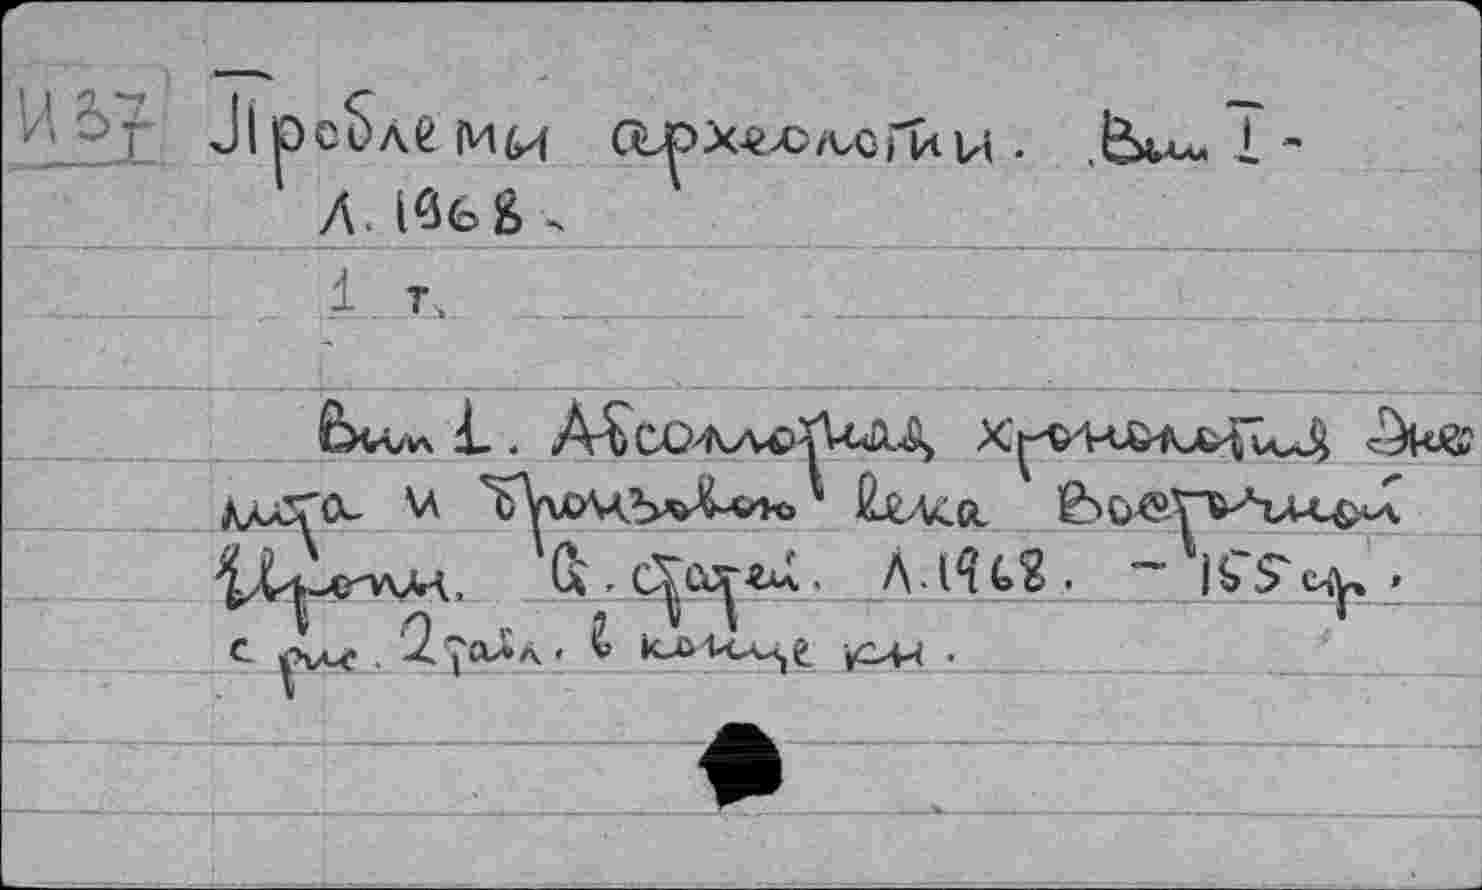 И 37 Проблемы археологии. Вып. I -
Л. 1968 -
1 т.
Вып 1. Абсолютная хронология Энео
лита и бронзового века Восточной
Европы. Сб. статей. Л. 1968. - 155 стр.
с рис. 2 табл. в конце кн.